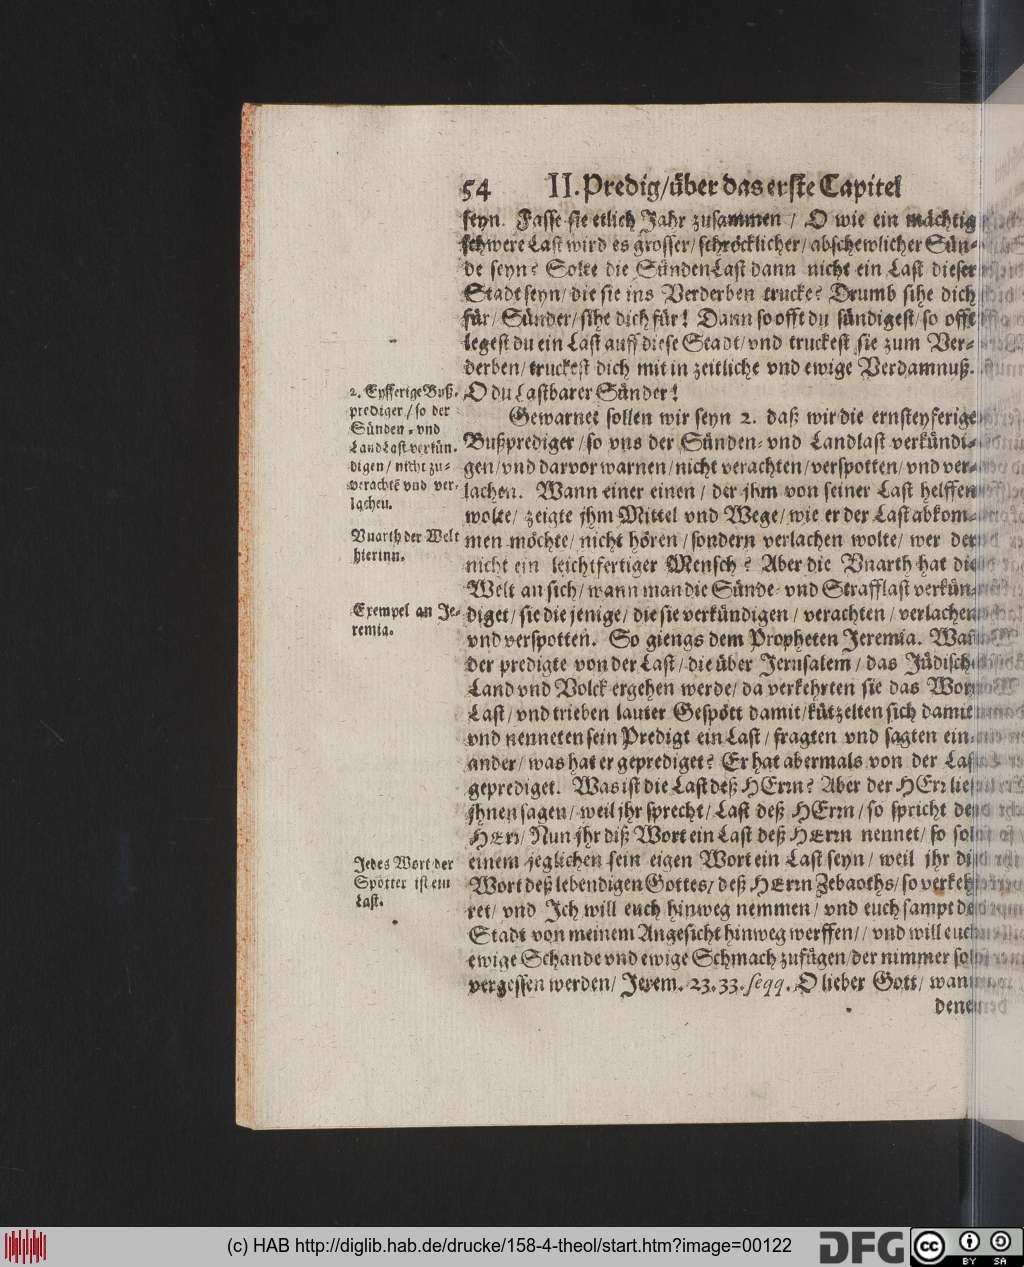 54 II. Predig/über das erste Capitel
seyn. Fasse sie etlich Jahr zusammen / O wie ein mächtig
schwere Last wird es grosser/schröcklicher/abschewlicher Sün-
de seyn? Solte die SündenLast dann nicht ein Last dieser
Stadt seyn/die sie ins Verderben trucke? Drumb sihe dich
für/Sünder/sihe dich für! Dann so offt du sündigest/so offt
legest du ein Last auff diese Stadt/vnd truckest sie zum Ver-
derben/truckest dich mit in zeitliche vnd ewige Verdamnuß.
O du Lastbarer Sünder!
2. Eyfferige Buß-
prediger/so der
Sünden- vnd
LandLast verkün-
digen/nicht zu-
verachtē vnd ver-
lachen.
Gewarnet sollen wir seyn 2. daß wir die ernsteyferige
Bußprediger/so vns der Sünden- vnd Landlast verkündi-
gen/vnd darvor warnen/nicht verachten/verspotten/vnd ver-
lachen. Wann einer einen / der jhm von seiner Last helffen
wolte/zeigte jhm Mittel vnd Wege/wie er der Last abkom-
Vnarth der Welt
hierinn.
men möchte/nicht hören/sondern verlachen wolte/wer der
nicht ein leichtfertiger Mensch? Aber die Vnarth hat die
Welt an sich/wann man die Sünde- vnd Strafflast verkün-
Exempel an Je-
remia.
diget/sie die jenige/die sie verkündigen / verachten/verlachen
vnd verspotten. So giengs dem Propheten Jeremia. Wañ
der predigte von der Last/die über Jerusalem/das Jüdisch
Land vnd Volck ergehen werde/da verkehrten sie das Wort
Last/vnd trieben lauter Gespött damit/kützelten sich damit
vnd nenneten sein Predigt ein Last/fragten vnd sagten ein-
ander/was hat er geprediget? Er hat abermals von der Last
geprediget. Was ist die Last deß HErrn? Aber der HErr ließ
jhnen sagen/weil jhr sprecht/Last deß HErrn/so spricht der
HErr/Nun jhr diß Wort ein Last deß HErrn nennet/so sol
Jedes Wort der
Spötter ist ein
Last.
einem jeglichen sein eigen Wort ein Last seyn/weil jhr diß
Wort deß lebendigen Gottes/deß HErrn Zebaoths/so verkeh-
ret/vnd Jch will euch hinweg nemmen/vnd euch sampt der
Stadt von meinem Angesicht hinweg werffen//vnd will euch
ewige Schande vnd ewige Schmach zufügen/der nimmer sol
vergessen werden/Jerem. 23.33. seqq. O lieber Gott/wann
denen
(c) HAB http://diglib.hab.de/drucke/158-4-theol/start.htm?image=00122
DFG
cc
BY SA